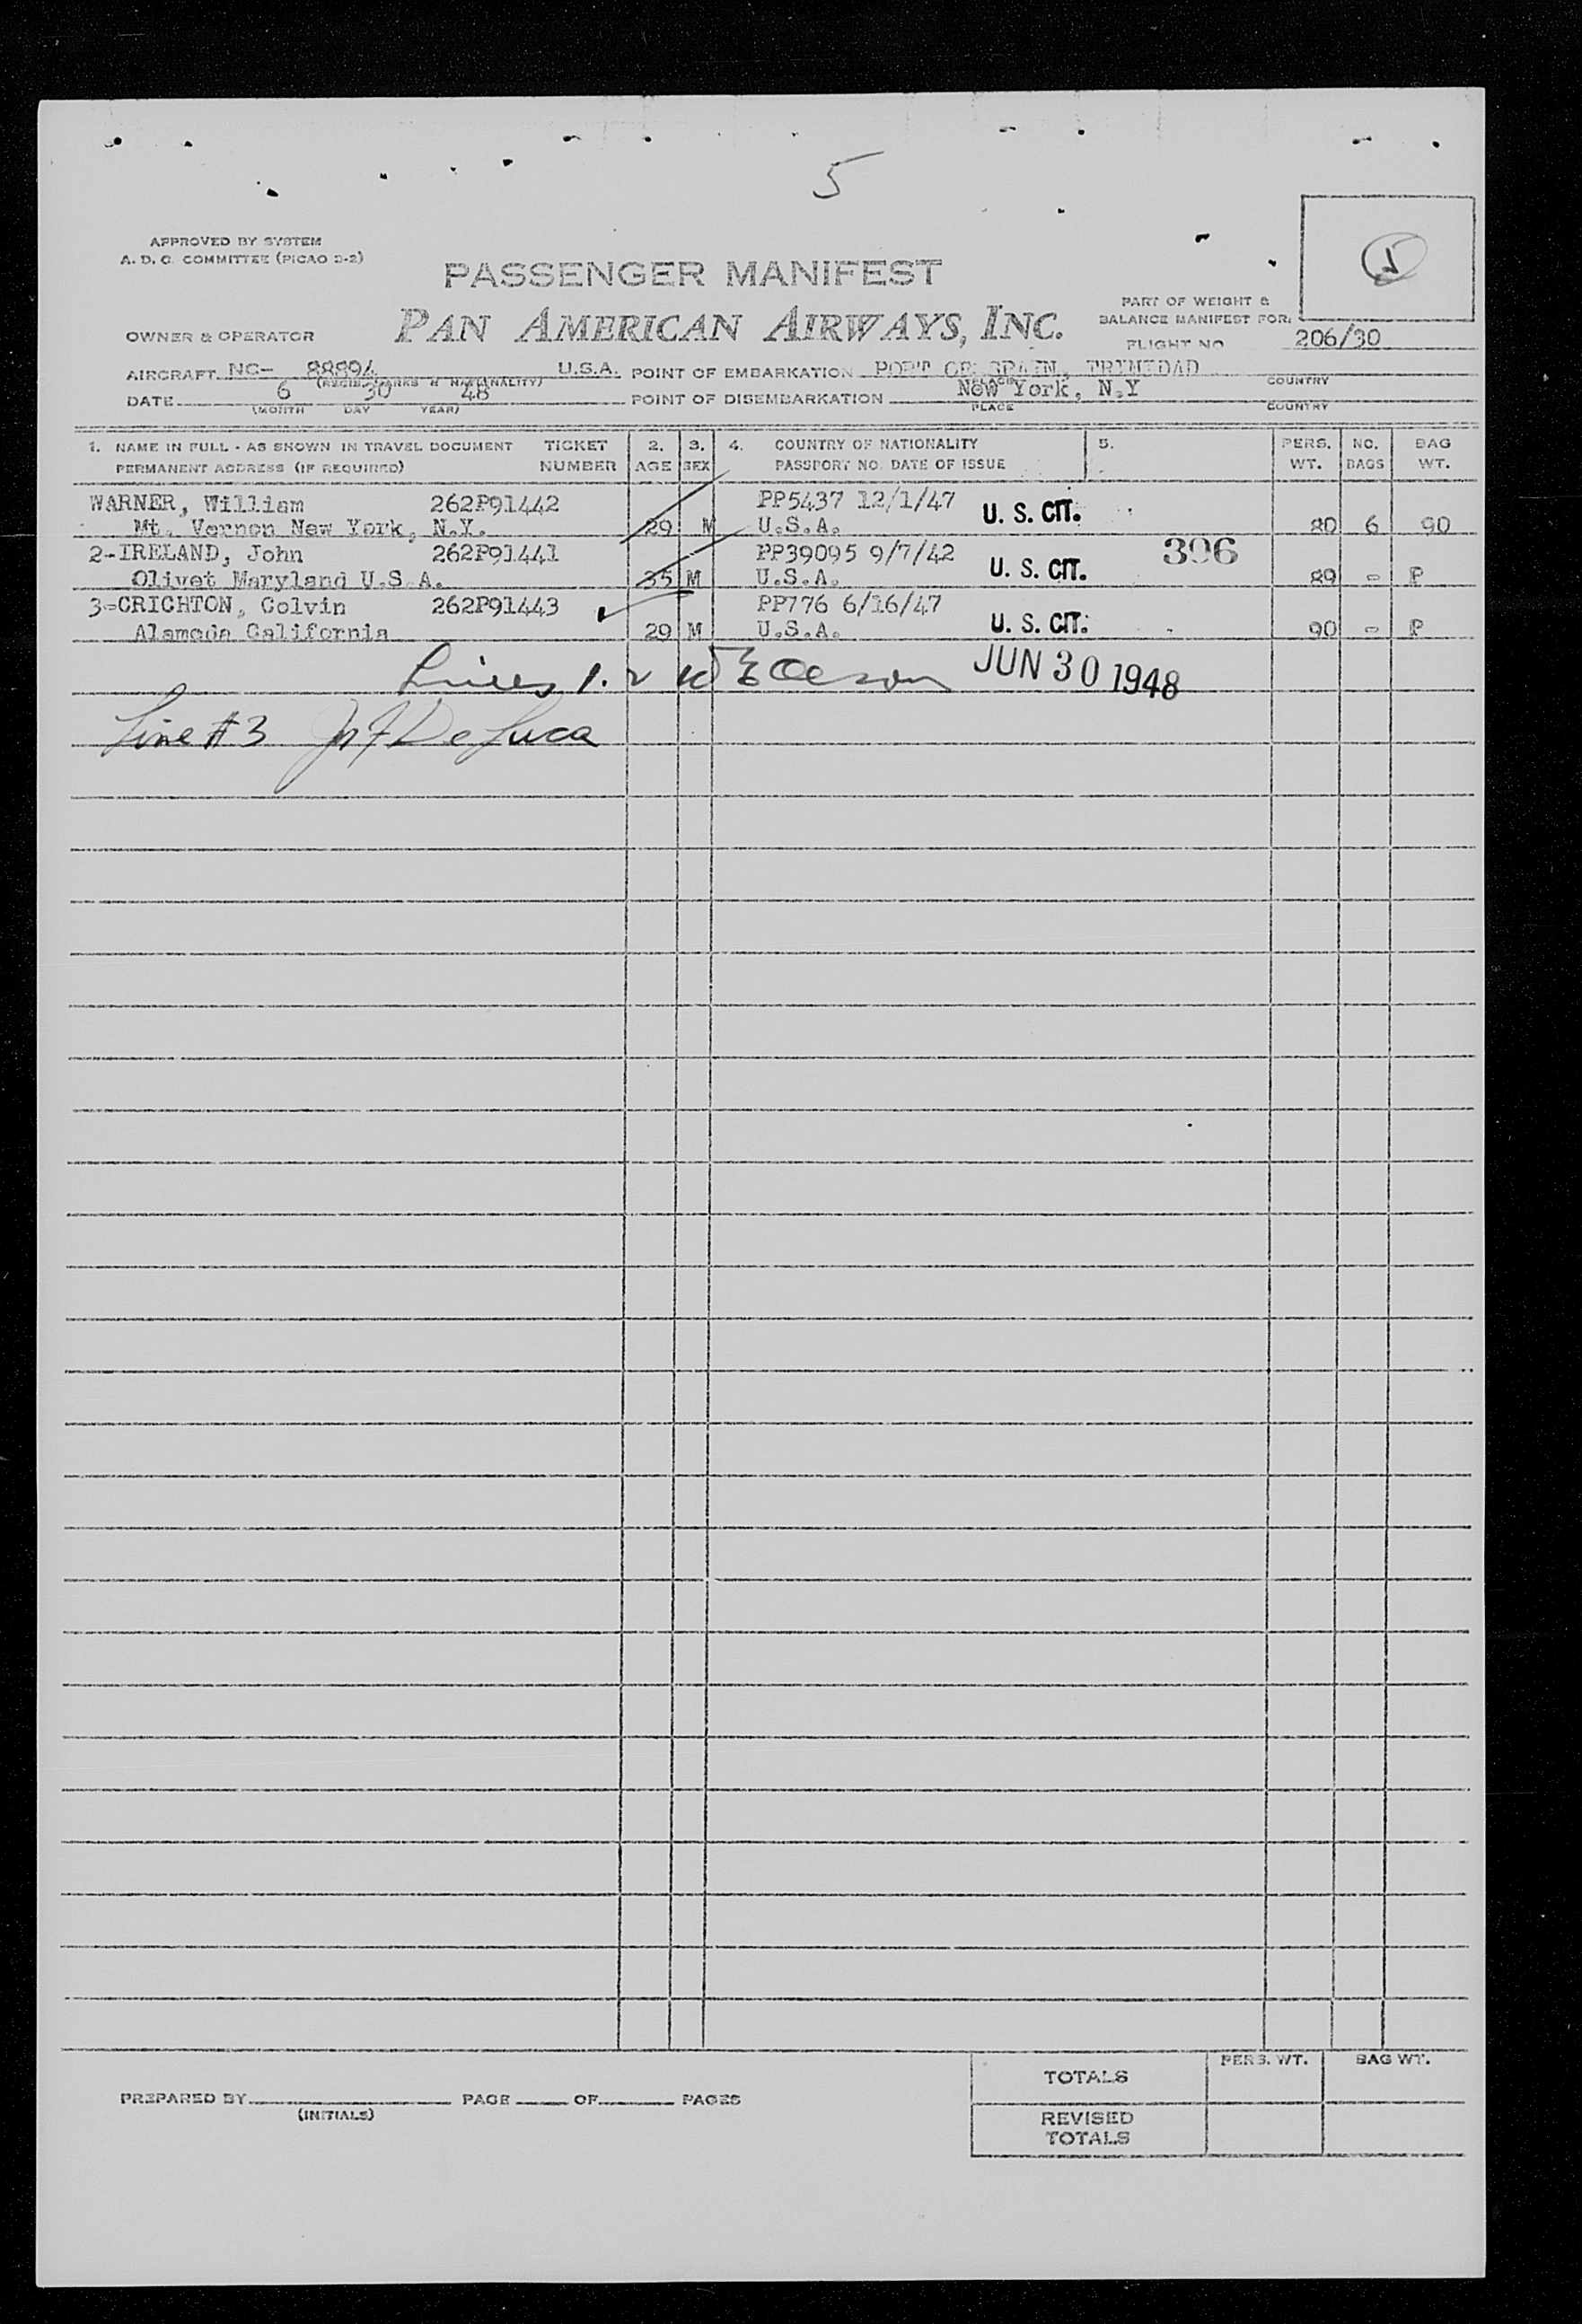 5
APPROVED BY SYSTEM
A. D. C. COMMITTEE (PICAO D-2)
PASSENGER MANIFEST
PAN AMERICAN AIRWAYS, INC.
OWNER & OPERATOR
PART OF WEIGHT &
BALANCE MANIFEST FOR:
FLIGHT NO 206/30
AIRCRAFT NC- 88894 U.S.A. POINT OF EMBARKATION PORT OF SPAIN, TRINIDAD
(REGIS. MARKS & NATIONALITY) PLACE COUNTRY
DATE 6 30 48 POINT OF DISEMBARKATION New York, N.Y
(MONTH DAY YEAR) PLACE COUNTRY
1. NAME IN FULL - AS SHOWN IN TRAVEL DOCUMENT TICKET 2. 3. 4. COUNTRY OF NATIONALITY 5. PERS. NO. BAG
PERMANENT ADDRESS (IF REQUIRED) NUMBER AGE SEX PASSPORT NO. DATE OF ISSUE WT. BAGS WT.
WARNER, William 262P91442 PP5437 12/1/47 U. S. CIT.
Mt. Vernon New York, N.Y. 29 M U.S.A. 80 6 90
2-IRELAND, John 262P91441 PP39095 9/7/42 U. S. CIT. 396
Olivet Maryland U.S.A. 35 M U.S.A. 89 - P
3-CRICHTON, Colvin 262P91443 PP776 6/16/47 U. S. CIT.
Alameda California 29 M U.S.A. 90 - P
Lines 1. 2 JUN 30 1948
Line #3 De Luca
TOTALS PERS. WT. BAG WT.
PREPARED BY PAGE OF PAGES
(INITIALS)
REVISED
TOTALS